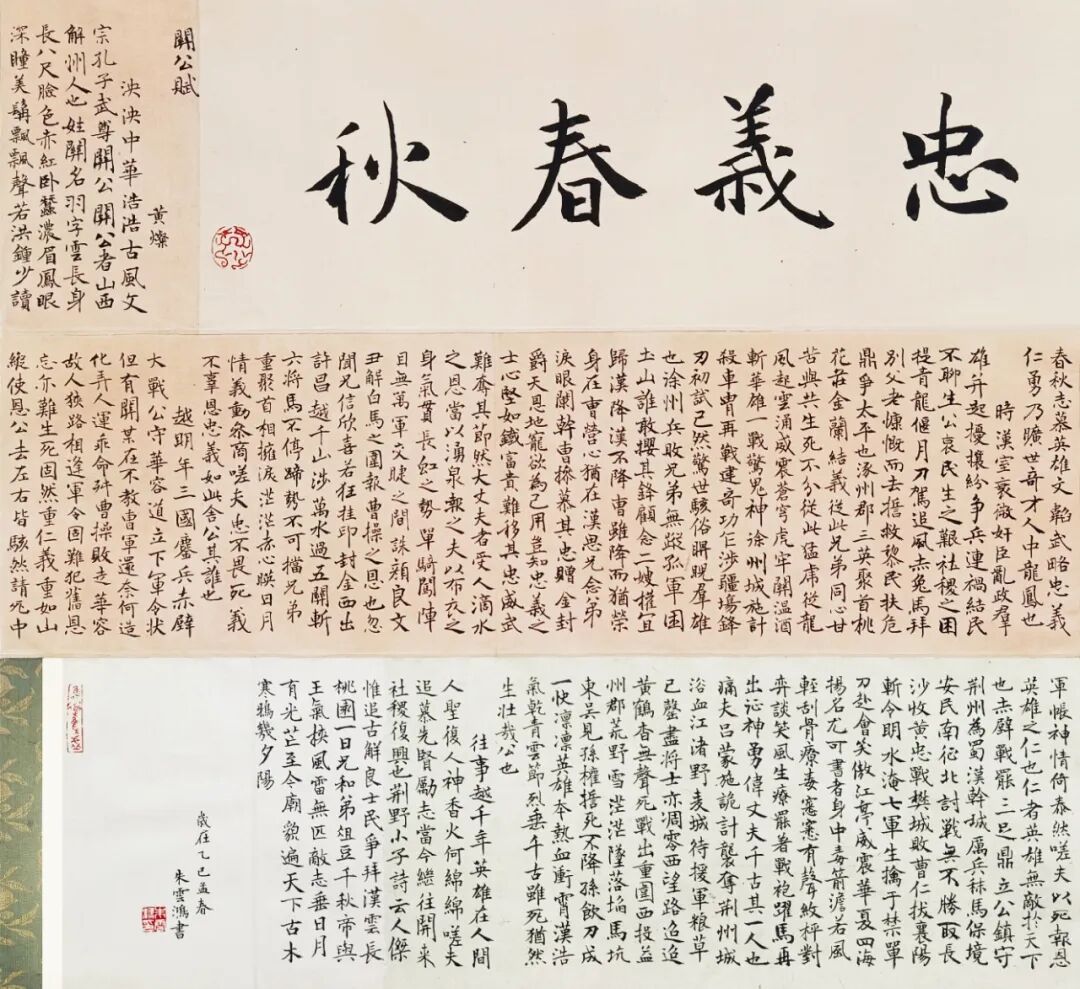 忠義春秋
關公賦
黃燦
泱泱中華浩浩古風文
宗孔子武尊關公關公者山西
解州人也姓關名羽字雲長身
長八尺臉色赤紅卧蠶濃眉鳳眼
深瞳美鬚飄飄聲若洪鍾少讀
春秋志慕英雄文韜武略忠義
仁勇乃曠世奇才人中龍鳳也
時漢室衰微奸臣亂政羣
雄并起擾攘紛爭兵連禍結民
不聊生公哀民生之艱社稷之困
提青龍偃月刀駕追風赤兔馬拜
別父老慷慨而去拯救黎民扶危
鼎爭太平也涿州郡三英聚首桃
花莊金蘭結義從此兄弟同心甘
苦與共生死不分從此猛虎從龍
風起雲涌威震蒼穹虎牢關溫酒
斬華雄一戰驚鬼神徐州城施計
殺車胄再戰建奇功乍涉疆場鋒
刃初試已然驚世駭俗睥睨羣雄
也涂州兵敗兄弟無蹤孤軍困
土山誰敢攖其鋒顧念二嫂權宜
歸漢降漢不降曹雖降而猶榮
身在曹營心猶在漢思兄念弟
淚眼闌幹曹操慕其忠贈金封
爵天恩地寵欲為己用豈知忠義之
士心堅如鐵富貴難移其忠威武
難奪其節然大丈夫者受人滴水
之恩當以湧泉報之夫以布衣之
身氣貫長虹之勢單騎闖陣
目無萬軍文睫之間誅顏良文
丑解白馬之圍報曹操之恩也忽
聞兄信欣喜若狂挂印封金西出
許昌越千山涉萬水過五關斬
六將馬不停蹄勢不可擋兄弟
重聚首相擁淚茫茫赤心映日月
情義動參商嗟夫忠不畏死義
不辜恩忠義如此舍公其誰也
越明年三國鏖兵赤壁
大戰公守華容道立下軍令狀
但有關某在不教曹軍還奈何造
化弄人運乖命舛曹操敗走華容
故人狹路相逢軍令固難犯舊恩
忘亦難生死固然重仁義重如山
縱使恩公去左右皆駭然請死中
軍帳神情倚泰然嗟夫以死報恩
英雄之仁也仁者英雄無敵於天下
也赤壁戰罷三足鼎立公鎮守
荆州為蜀漢幹城厲兵秣馬保境
安民南征北討戰無不勝取長
沙收黃忠戰樊城敗曹仁拔襄陽
斬令明水淹七軍生擒于禁單
刀赴會笑傲江亭威震華夏四海
揚名尤可書者身中毒箭澹若風
輕刮骨療毒窸窸有聲紋枰對
弈談笑風生療罷著戰袍躍馬再
出征神勇偉丈夫千古其一人也
痛夫呂蒙施詭計襲奪荆州城
浴血江渚野麦城待援軍粮草
已罄盡將士亦凋零西望路迢迢
黃鶴杳無聲死戰出重圍西投益
州郡荒野雪茫茫墜落陷馬坑
東吳見孫權誓死不降孫飲刀成
一快凜凜英雄本熱血衝霄漢浩
氣乾青雲節烈垂千古雖死猶然
生壯哉公也
往事越千年英雄在人間
人聖復人神香火何綿綿嗟夫
追慕先賢勵志當今繼往開来
社稷復興也荆野小子詩云人傑
惟追古解良士民爭拜漢雲長
桃園一日兄和弟俎豆千秋帝與
王氣挾風雷無匹敵志垂日月
有光芒至今廟貌遍天下古木
寒鴉幾夕陽
歲在乙巳孟春
朱雲鴻書